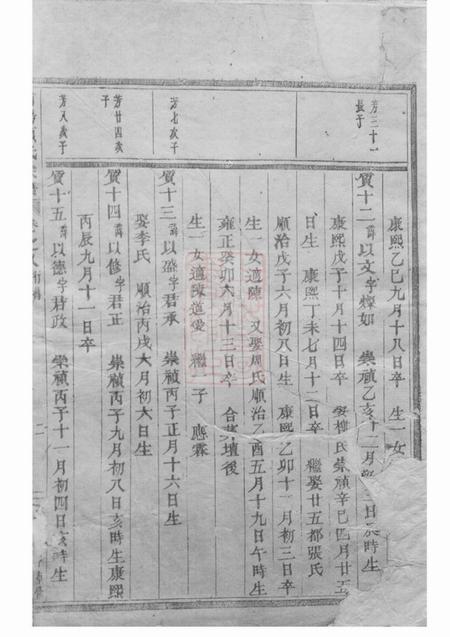 康熙乙巳九月十八日卒 生一女
芳三十一長子
質十二諱以文字燦如 崇禎乙亥十二月 日辰時生
康熙戊子十月十四日卒 娶柳氏崇禎辛巳四月廿五
日生 康熙丁未七月十二日卒 繼娶廿五都張氏
順治戊子六月初八日生 康熙乙卯十一月初三日卒
生一女適陳 又娶周氏順治乙酉五月十九日午時生
雍正癸卯六月十三日卒 合葬壇後
生一女適陳道愛 繼一子應霖
芳七次子
質十三諱以盛字君承 崇禎丙子正月十六日生
娶李氏 順治丙戌六月初六日生
芳廿四次子
質十四諱以修字君正 崇禎丙子九月初八日亥時生康熙
丙辰九月十一日卒
芳八次子
質十五諱以德字君政 崇禎丙子十一月初四日亥時生